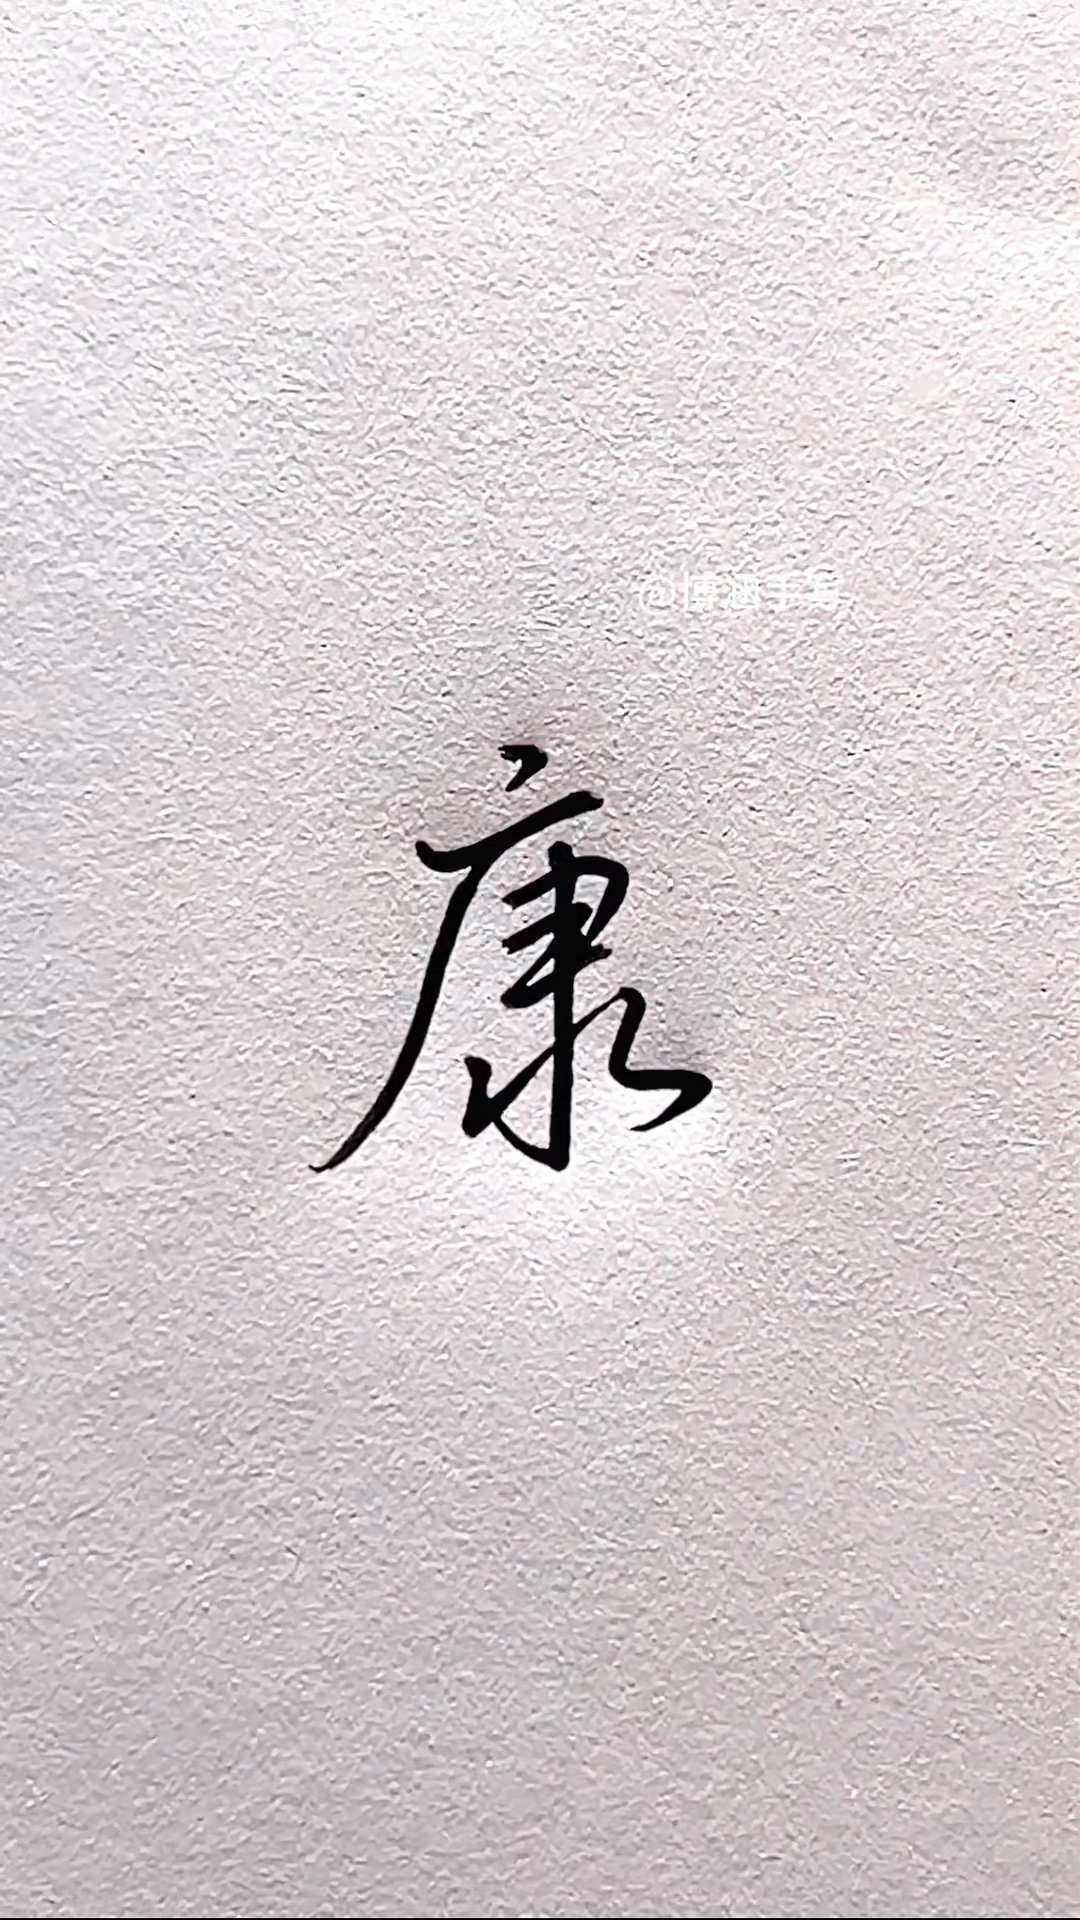 @博涵手写
康